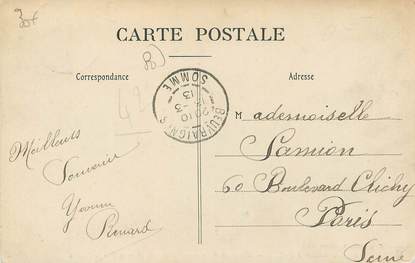 CARTE POSTALE
Correspondance
Adresse
BEUVRAIGNES
SOMME
20 10
13
Meilleurs
Souvenir
Yvonne
Renard
Mademoiselle
Samion
60 Boulevard Clichy
Paris
Seine